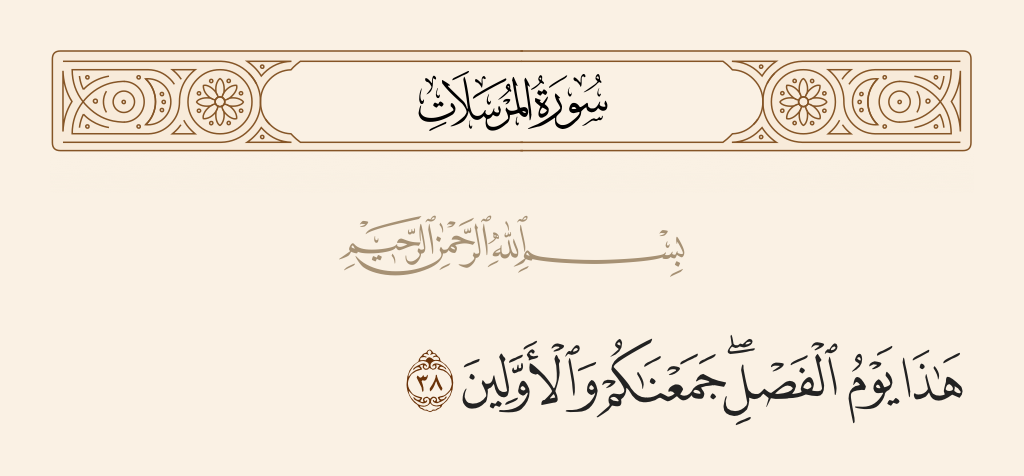 سُورَةُ المُرْسَلَاتِ
بِسْمِ ٱللَّهِ ٱلرَّحْمَٰنِ ٱلرَّحِيمِ
هَٰذَا يَوْمُ ٱلْفَصْلِ ۖ جَمَعْنَٰكُمْ وَٱلْأَوَّلِينَ ٣٨